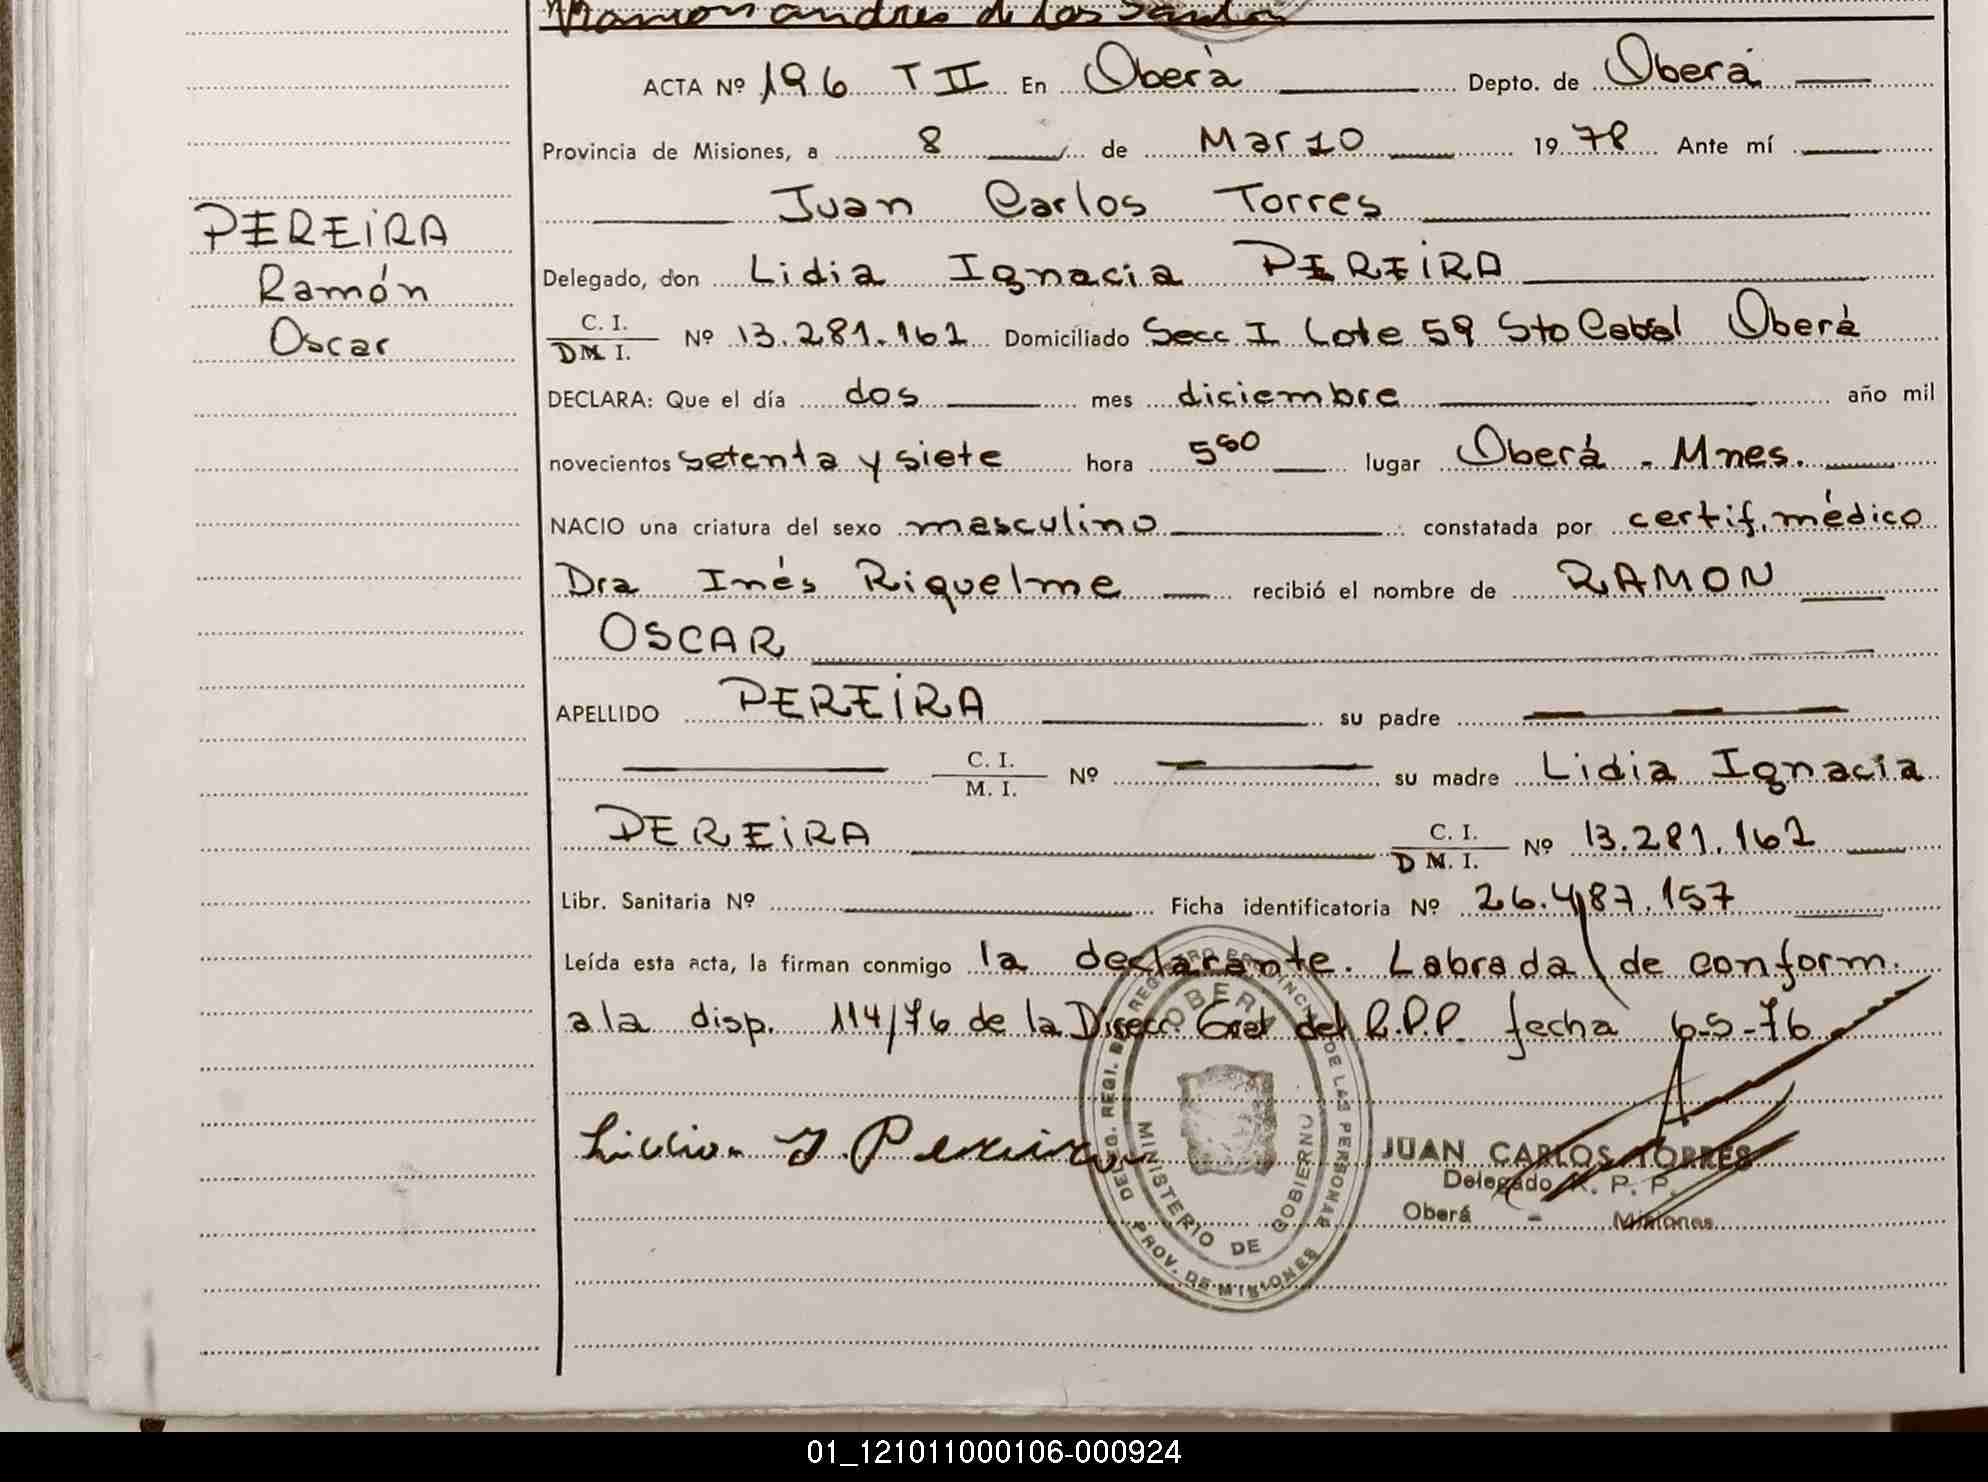 Ramon andres de los Santos
ACTA Nº 196 T II En Oberá Depto. de Oberá
Provincia de Misiones, a 8 de Marzo 1978 Ante mí
Juan Carlos Torres
PEREIRA
Delegado, don Lidia Ignacia PEREIRA
Ramón
C. I.
DM. I. Nº 13.281.162 Domiciliado Secc. I Lote 59 Sto Cabal Oberá
Oscar
DECLARA: Que el día dos mes diciembre año mil
novecientos setenta y siete hora 5 lugar Oberá - Mnes.
NACIO una criatura del sexo masculino constatada por certif. médico
Dra Inés Riquelme recibió el nombre de RAMON
OSCAR
APELLIDO PEREIRA su padre
C. I.
M. I. Nº su madre Lidia Ignacia
PEREIRA C. I.
D M. I. Nº 13.281.162
Libr. Sanitaria Nº Ficha identificatoria Nº 26.487.157
Leída esta acta, la firman conmigo la declarante. Labrada de conform.
a la disp. 114/76 de la Direcc. Gral del R.P.P. fecha 6-5-76
Lidia I. Pereira
JUAN CARLOS TORRES
Delegado R. P. P.
Oberá - Misiones
OBERÁ
MINISTERIO DE GOBIERNO
PROV. DE MISIONES
DE LAS PERSONAS
01_121011000106-000924